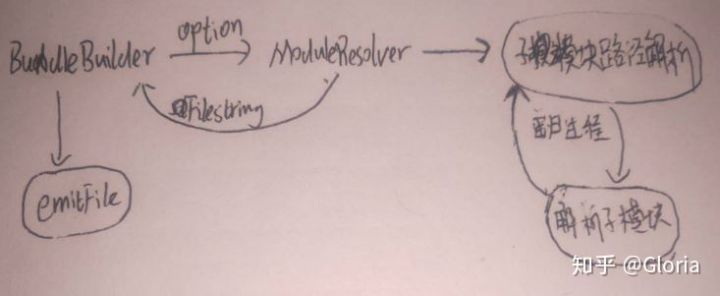 BundleBuilder
option
ModuleResolver
子模块路径解析
Filestring
emitFile
解析子模块
知乎 @Gloria